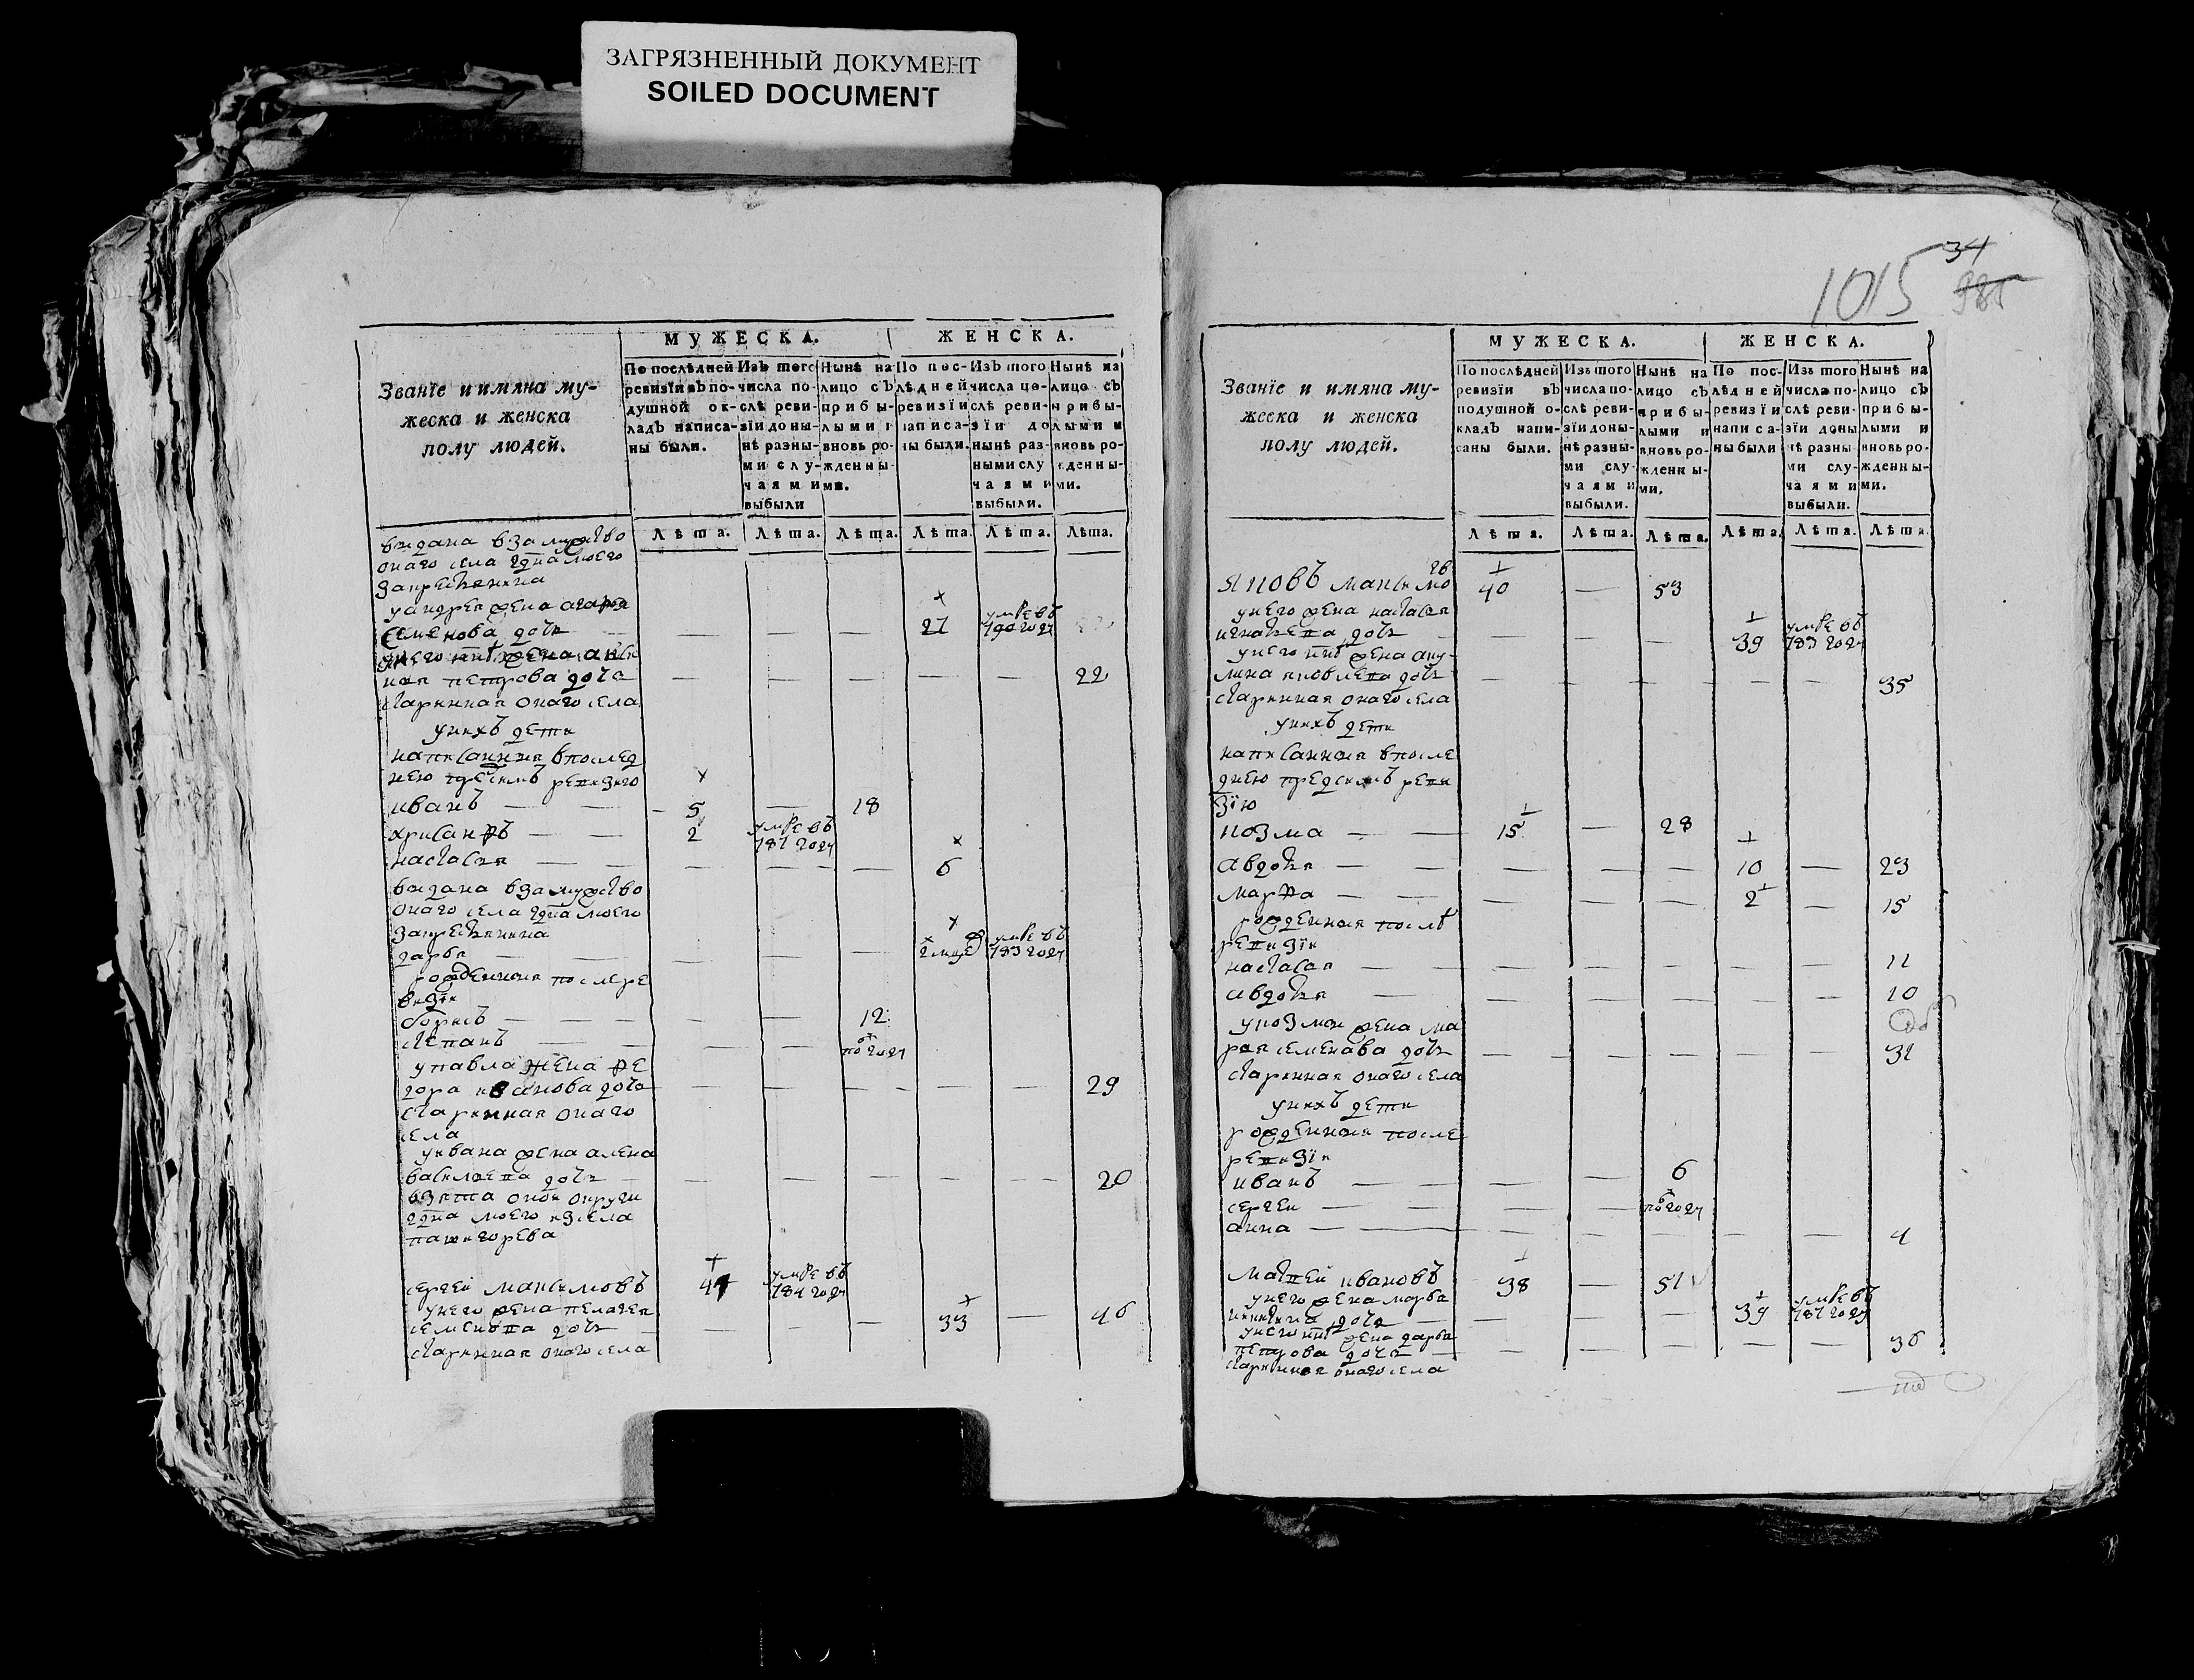 ЗАГРЯЗНЕННЫЙ ДОКУМЕНТ
SOILED DOCUMENT
МУЖЕСКА. ЖЕНСКА.
Званїе и имяна му-
жеска и женска
полу людей.
По послѣдней ревизїи въ по-душной ок-ладъ написа-ны были.
Изъ того числа по-слѣ реви-зїи до ны-нѣ разны-ми слу-чаями выбыли
Нынѣ на лицо съ прибы-лыми и вновь ро-жденны-ми.
По пос-лѣдней ревизїи написа-ны были.
Изъ того числа по-слѣ реви-зїи до нынѣ раз-ными слу чаями выбыли.
Нынѣ на лицо съ прибы-лыми и вновь ро-жденны-ми.
Лѣта. Лѣта. Лѣта. Лѣта. Лѣта. Лѣта.
выдана взамужство
онаго села гдна моего
закрестьянина
уандрея жена
семенова дочь — — — 27 умре въ 790 году
унего жена
петрова дочь — — — — — 22
старинная онаго села
унихъ дети
написанныя впослед
нею пред симъ ревизию
иванъ — — 5 — 18
хрисанфъ — — 2 умре въ 787 году
настасья — — — — — 6
выдана взамужство
онаго села гдна моего
закрестьянина
дарья — — — — умре въ 783 году
рожденныя послере
визїи
борисъ — — — — — 12
степанъ — — — — по году
упавла жена фе
дора иванова дочь — — — — — 29
старинная онаго
села
уивана жена алена
васильева дочь — — — — — — 20
взята оной округи
гдна моего изсела
сергей максимовъ 47 умре въ 784 году
унего жена пелагея
семенова дочь — — — — 33 — 46
старинная онаго села
1015 34
985
МУЖЕСКА. ЖЕНСКА.
Званїе и имяна му-
жеска и женска
полу людей.
По послѣдней ревизїи въ подушной о-кладъ напи-саны были.
Изъ того числа по-слѣ реви-зїи до ны-нѣ разны-ми слу-чаями выбыли.
Нынѣ на лицо съ прибы-лыми и вновь ро-жденны-ми.
По пос-лѣдней ревизїи написа-ны были
Изъ того числа по-слѣ реви-зїи до ны нѣ разны-ми слу-чаями выбыли.
Нынѣ на лицо съ прибы-лыми и вновь ро-жденны-ми.
Лѣта. Лѣта. Лѣта. Лѣта. Лѣта. Лѣта.
яковъ максимовъ 40 — 53
унего жена настасья
игнатьева дочь — — — — 39 умре въ 783 году
унего жена аку-
лина яковлева дочь — — — — — — 35
старинная онаго села
унихъ дети
написанныя впосле
днею предсимъ реви
зїю
козма — — 15 — 28
авдотья — — — — — 10 — 23
марфа — — — — — 2 — 15
рожденныя послѣ
ревизїи
настасья — — — — — — 11
авдотья — — — — — — 10
укозмы жена ма
рья семенава дочь — — — — — — 31
старинная онаго села
унихъ дети
рожденныя после
ревизїи
иванъ — — — — 6
сергей — — — — по году
анна — — — — — — 4
матвей ивановъ 38 — 51
унего жена марфа
никитина дочь — — — — 39 умре въ 787 году
унего жена дарья
петрова дочь — — — — — — 36
старинная онаго села